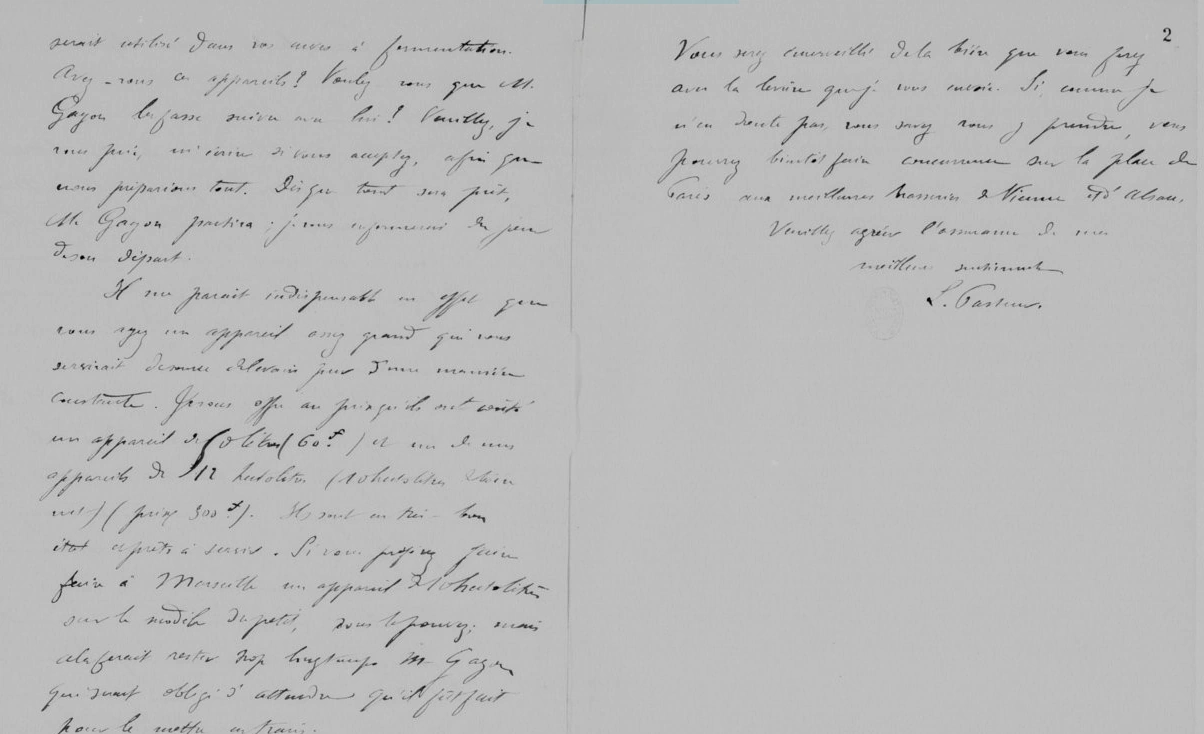 serait utilisé dans vos cuves à fermentation.
Avez-vous ces appareils? Voulez-vous que M.
Gayon les fasse suivre avec lui? Veuillez, je
vous prie, m'écrire si vous acceptez, afin que
nous préparions tout. Dès que tout sera prêt,
M. Gayon partira; je vous informerai du jour
de son départ.
Il me parait indispensable en effet que
vous ayez un appareil assez grand qui vous
servirait de source de levain pur d'une manière
constante. Je vous offre au prix qu'ils ont coûté
un appareil de 50 litres (60f.) et un de nos
appareils de 12 hectolitres (10 hectolitres de bière
net) (prix 300f). Ils sont en très-bon
état et prêts à servir. Si vous préférez faire
faire à Marseille un appareil de 10 hectolitres
sur le modèle du petit, vous le pouvez; mais
cela ferait rester trop longtemps M. Gayon
qui serait obligé d'attendre qu'il fût fait
pour le mettre en train.
2
Vous serez émerveillé de la bière que vous ferez
avec la levûre que je vous envoie. Si, comme je
n'en doute pas, vous savez vous y prendre, vous
pourrez bientôt faire concurrence sur la place de
Paris aux meilleures brasseries de Vienne et d'Alsace.
Veuillez agréer l'assurance de mes
meilleurs sentiments
L. Pasteur.